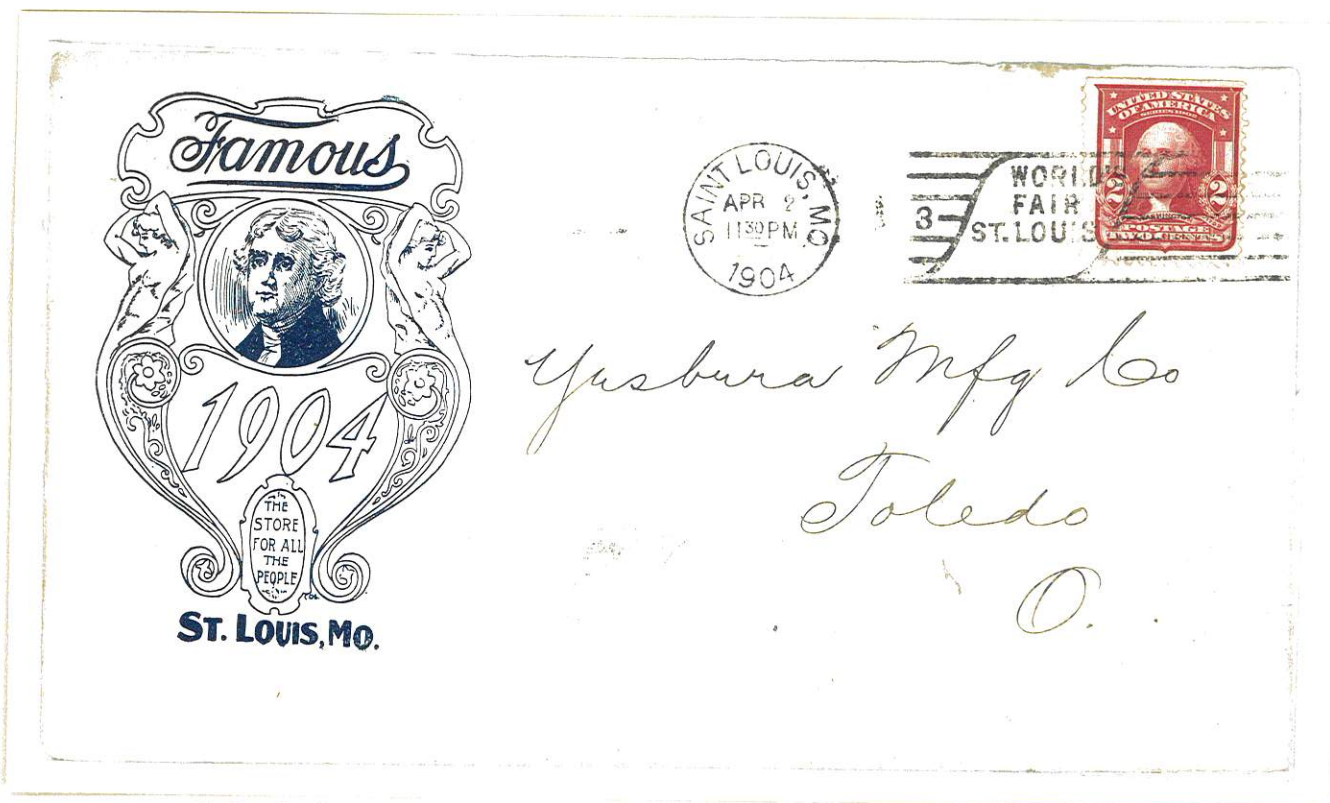 Famous
1904
THE
STORE
FOR ALL
THE
PEOPLE
ST. LOUIS, MO.
SAINT LOUIS, MO.
APR 2
11 30 PM
1904
3
WORLD'S
FAIR
ST. LOUIS
UNITED STATES
OF AMERICA
SERIES 1902
2 2
WASHINGTON
POSTAGE
TWO CENTS
Mfg Co
Toledo
O.